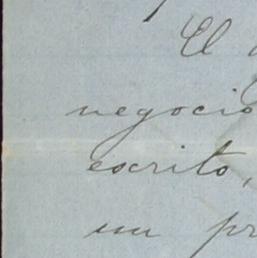 El
negocio
escrito,
un pr